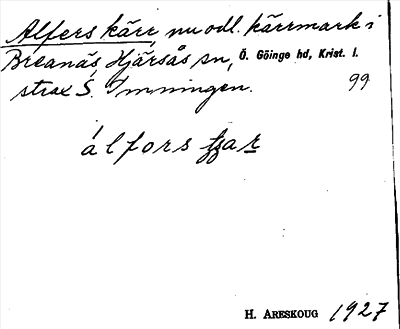 Alfers kärr, nu odl. kärrmark i
Breanäs, Hjärsås sn, Ö. Göinge hd, Krist. l.
strax S. Immningen. 99
álfors
H. ARESKOUG 1927